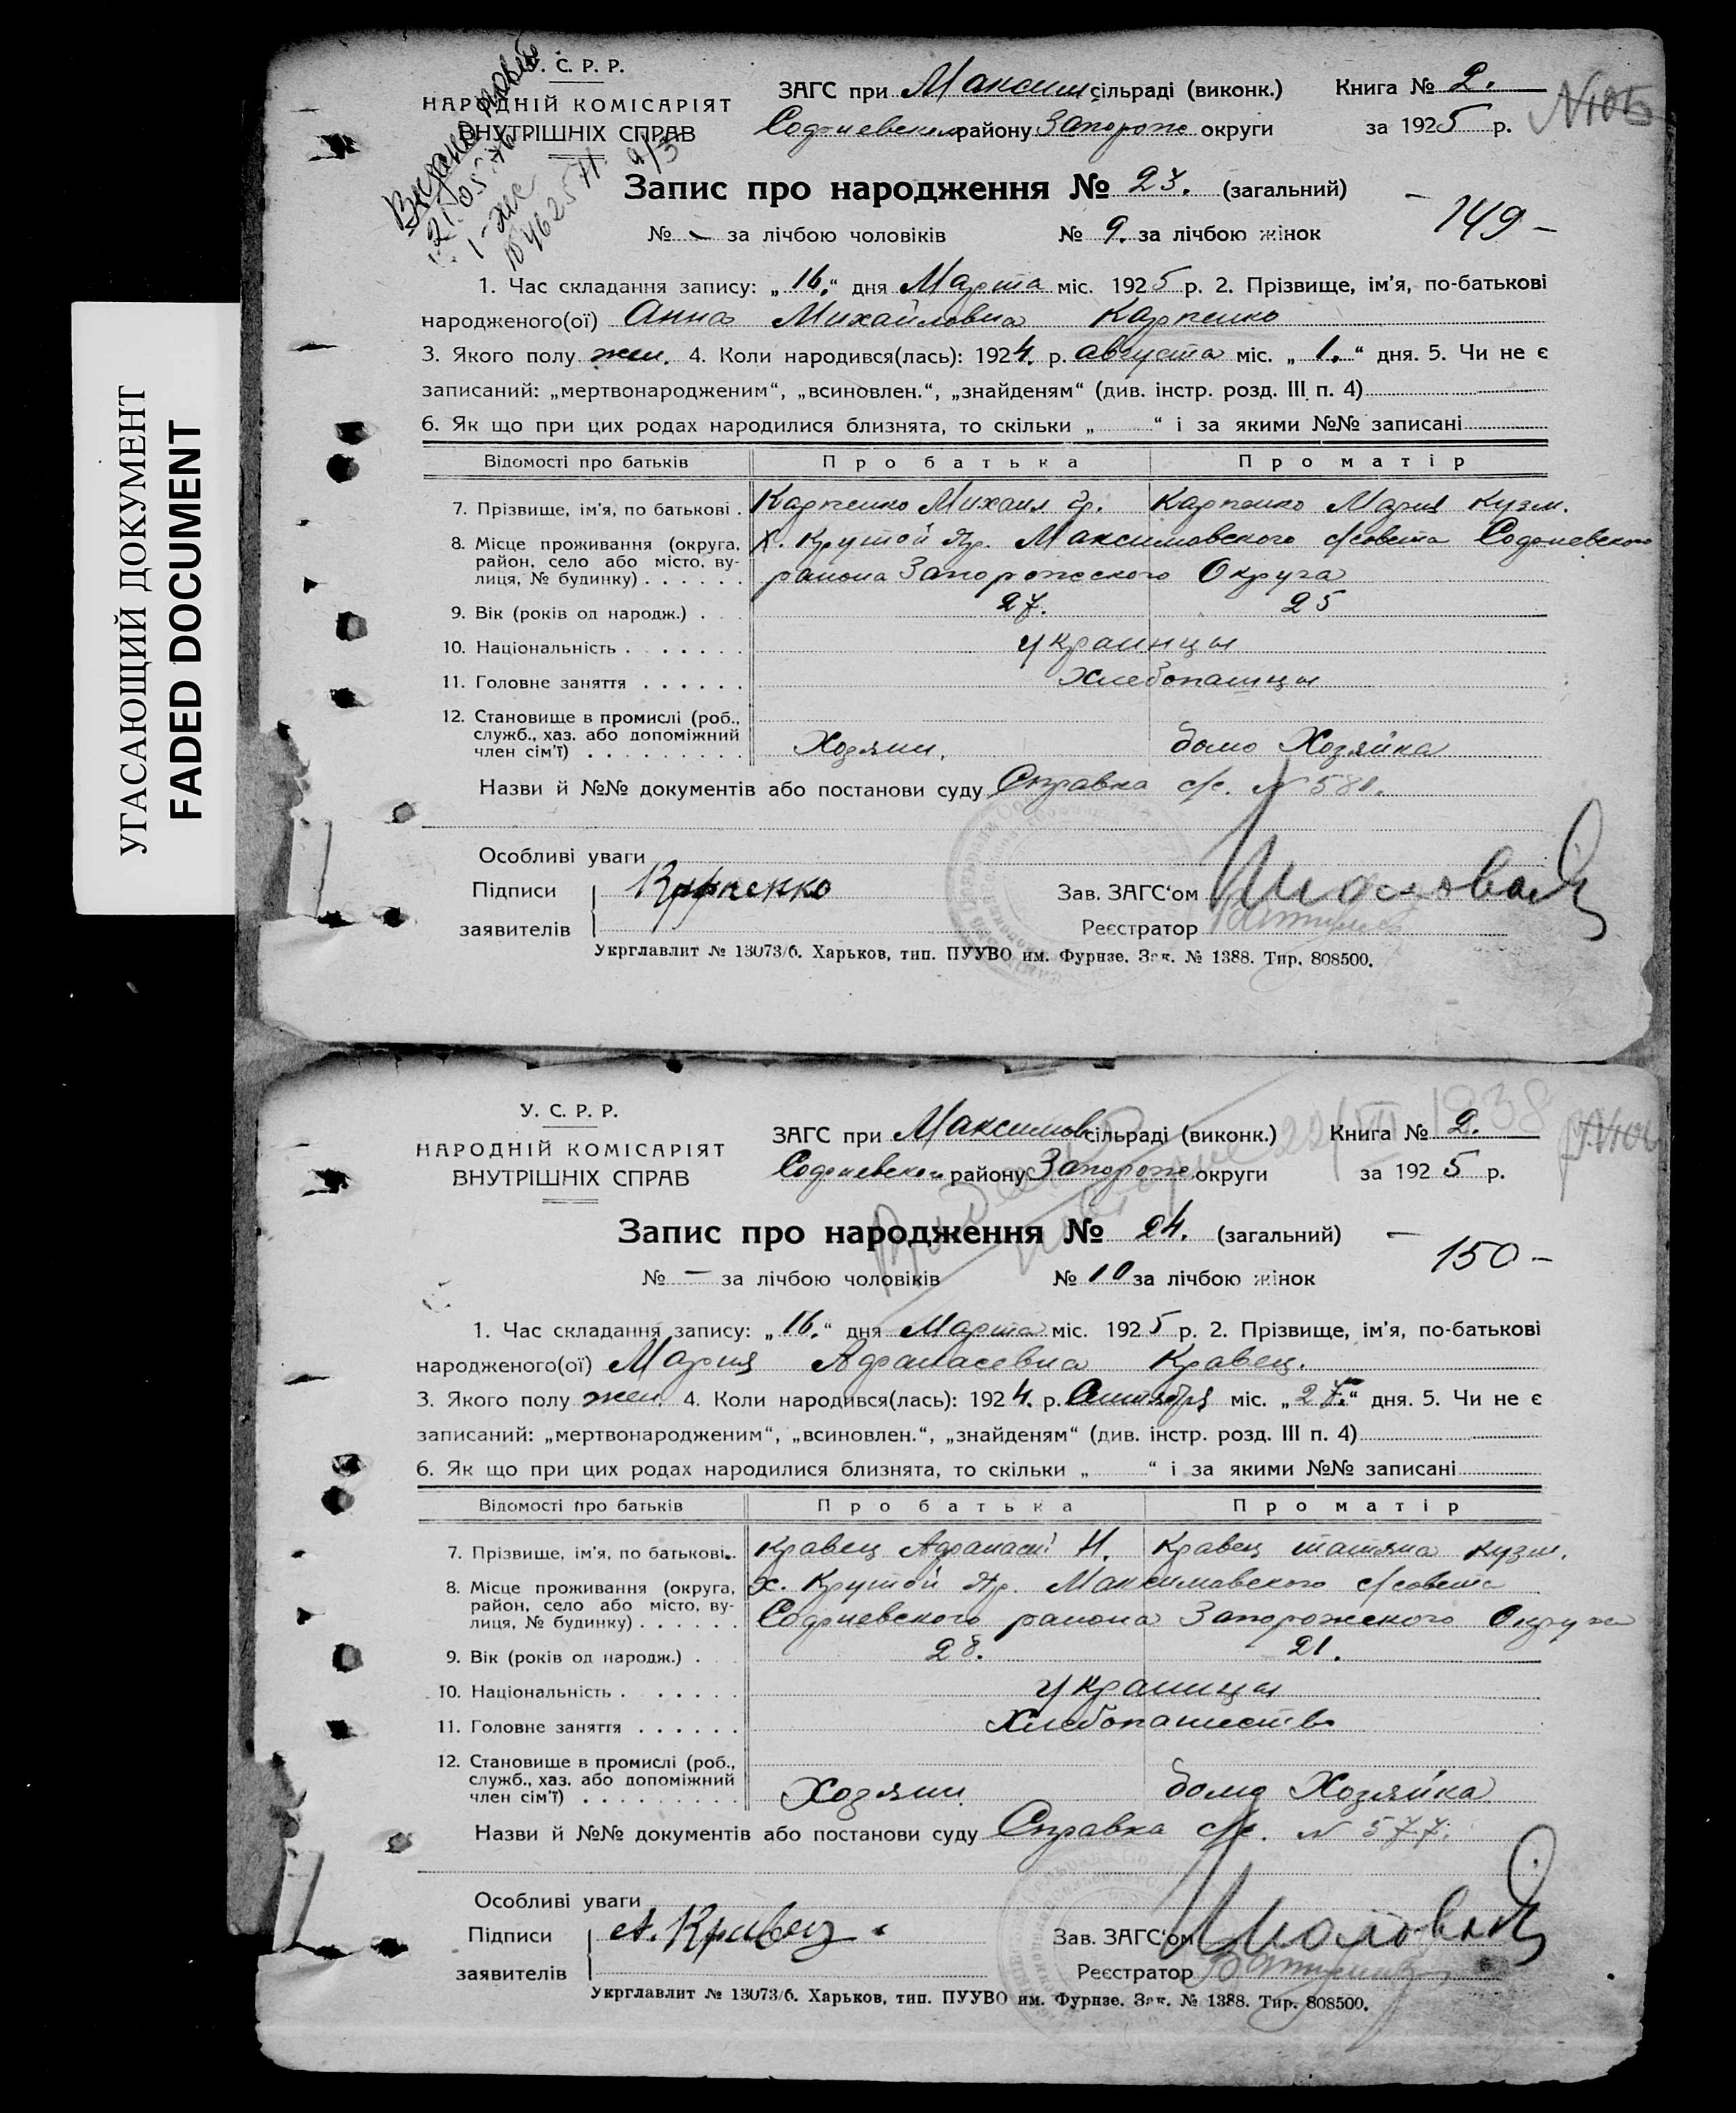 УГАСАЮЩИЙ ДОКУМЕНТ
FADED DOCUMENT
С. Р. Р.
НАРОДНІЙ КОМІСАРІЯТ
ВНУТРІШНІХ СПРАВ
ЗАГС при Максим сільраді (виконк.) Книга № 2.
району Запорож округи за 1925 р.
Запис про народження № 23. (загальний)
- 149 -
№ - за лічбою чоловіків № 9. за лічбою жінок
1. Час складання запису: „16.“ дня Марта міс. 1925 р. 2. Прізвище, ім'я, по-батькові
народженого(ої) Анна Михайловна Карпенко
3. Якого полу жен. 4. Коли народився(лась): 1924. р. августа міс. „1.“ дня. 5. Чи не є
записаний: „мертвонародженим“, „всиновлен.“, „знайденям“ (див. інстр. розд. III п. 4)
6. Як що при цих родах народилися близнята, то скільки „ “ і за якими №№ записані
Відомості про батьків Про батька Про матір
7. Прізвище, ім'я, по батькові . Карпенко Михаил Гр. Карпенко Мария Кузм.
8. Місце проживання (округа, район, село або місто, вулиця, № будинку) . . . . . . х. Крутой Яр. Максимовского с/совета
района Запорожского Округа
9. Вік (років од народж.) . . . 27. 25
10. Національність . . . . . . украинцы
11. Головне заняття . . . . . . Хлебопашцы
12. Становище в промислі (роб., служб., хаз. або допоміжний член сім'ї) . . . . . . . . . Хозяин, домо Хозяйка
Назви й №№ документів або постанови суду Справка с/с. N 580.
Особливі уваги
Підписи Карпенко Зав. ЗАГС'ом
заявителів Реєстратор
Укрглавлит № 13073/6. Харьков, тип. ПУУВО им. Фурнзе. Зак. № 1388. Тир. 808500.
У. С. Р. Р.
НАРОДНІЙ КОМІСАРІЯТ
ВНУТРІШНІХ СПРАВ
ЗАГС при Максимов сільраді (виконк.) Книга № 2.
району Запорож округи за 1925 р.
Запис про народження № 24. (загальний)
- 150 -
№ - за лічбою чоловіків № 10 за лічбою жінок
1. Час складання запису: „16.“ дня Марта міс. 1925 р. 2. Прізвище, ім'я, по-батькові
народженого(ої) Мария Афанасевна Кравец.
3. Якого полу жен. 4. Коли народився(лась): 1924. р. міс. „27.“ дня. 5. Чи не є
записаний: „мертвонародженим“, „всиновлен.“, „знайденям“ (див. інстр. розд. III п. 4)
6. Як що при цих родах народилися близнята, то скільки „ “ і за якими №№ записані
Відомості про батьків Про батька Про матір
7. Прізвище, ім'я, по батькові. . Кравец Афанасій Н. Кравец татяна Кузм.
8. Місце проживання (округа, район, село або місто, вулиця, № будинку) . . . . . . х. Крутой Яр. Максимовского с/совета
района Запорожского Округа
9. Вік (років од народж.) . . 28. 21.
10. Національність . . . . . . украинцы
11. Головне заняття . . . . . . Хлебопашество
12. Становище в промислі (роб., служб., хаз. або допоміжний член сім'ї) . . . . . . . . . Хозяин домо Хозяйка
Назви й №№ документів або постанови суду Справка с/с. N 577.
Особливі уваги
Підписи А. Кравец Зав. ЗАГС'ом
заявителів Реєстратор
Укрглавлит № 13073/6. Харьков, тип. ПУУВО им. Фурнзе. Зак. № 1388. Тир. 808500.